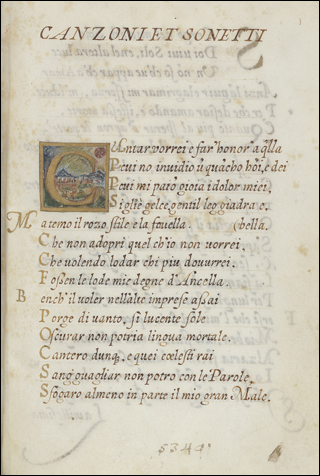 CANZONI ET SONETTI
Cantar vorrei e far' honor a q̃lla
P cui no invidio ũqua cho hõi, e dei
P cui mi pato gioia i dolor miei,
Si gl'è gelce, gentil leggiadra e.
Ma temo il rozo stile e la favella. (bella.
Che non adopri quel ch'io non vorrei.
Che volendo lodar chi piu dovurrei.
Fossen le lode mie degne d'Ancella.
Bench'il voler nell'alte imprese assai
Porge di vanto, sì lucente sole
Oscurar non potria lingua mortale.
Cantero dunq̃, e quei coelesti rai
S'anguagliar non potro con le Parole.
Sfogaro almeno in parte il mio gran Male.
5344